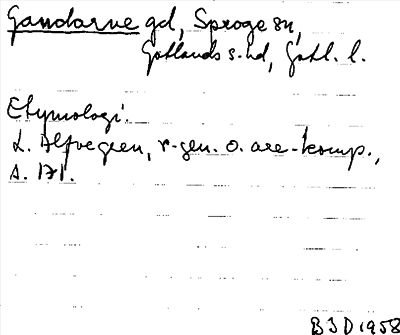 Gandarve gd, Sproge sn,
Gotlands s. hd, Gotl. l.
Etymologi.
L. Alfvegren, r-gen. o. are-komp.,
s. 171.
BJD 1958